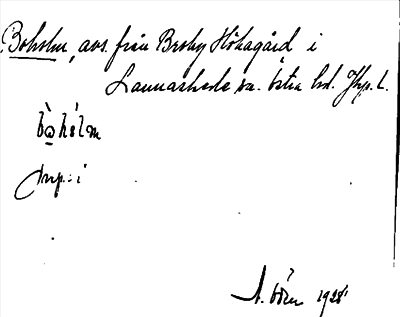 Boholm, avs. från Broby Hökagård i
Lannaskede sn. Östra hd. Jkp. L.
bo̲hólm
prep.: i
1928